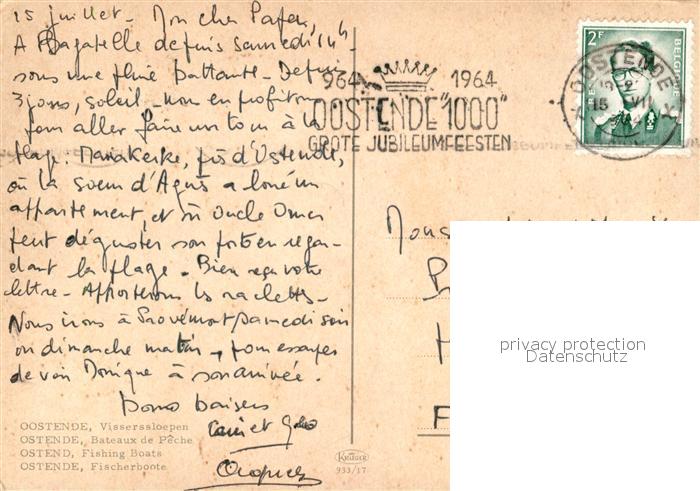 15 juillet - Mon cher Papa,
A Bagatelle depuis samedi 14h -
sous une pluie battante - Depuis
3 jours, soleil - nous en profitons
pour aller faire un tour à la
plage. Mariakerke, près d'Ostende,
où la soeur d'Agnès a loué un
appartement, et où Oncle Omer
peut déguster son porto en regar-
dant la plage. Bien reçu votre
lettre - Apporterons les raclettes -
Nous irons à samedi soir
ou dimanche matin, pour essayer
de voir Monique à son arrivée.
bons baisers
et
OOSTENDE, Visserssloepen
OSTENDE, Bateaux de Pêche
OSTEND, Fishing Boats
OSTENDE, Fischerboote
KRÜGER
933/17
964 1964
OOSTENDE "1000"
GROTE JUBILEUMFEESTEN
2F
BELGIQUE
OOSTENDE
15 VII
privacy protection
Datenschutz